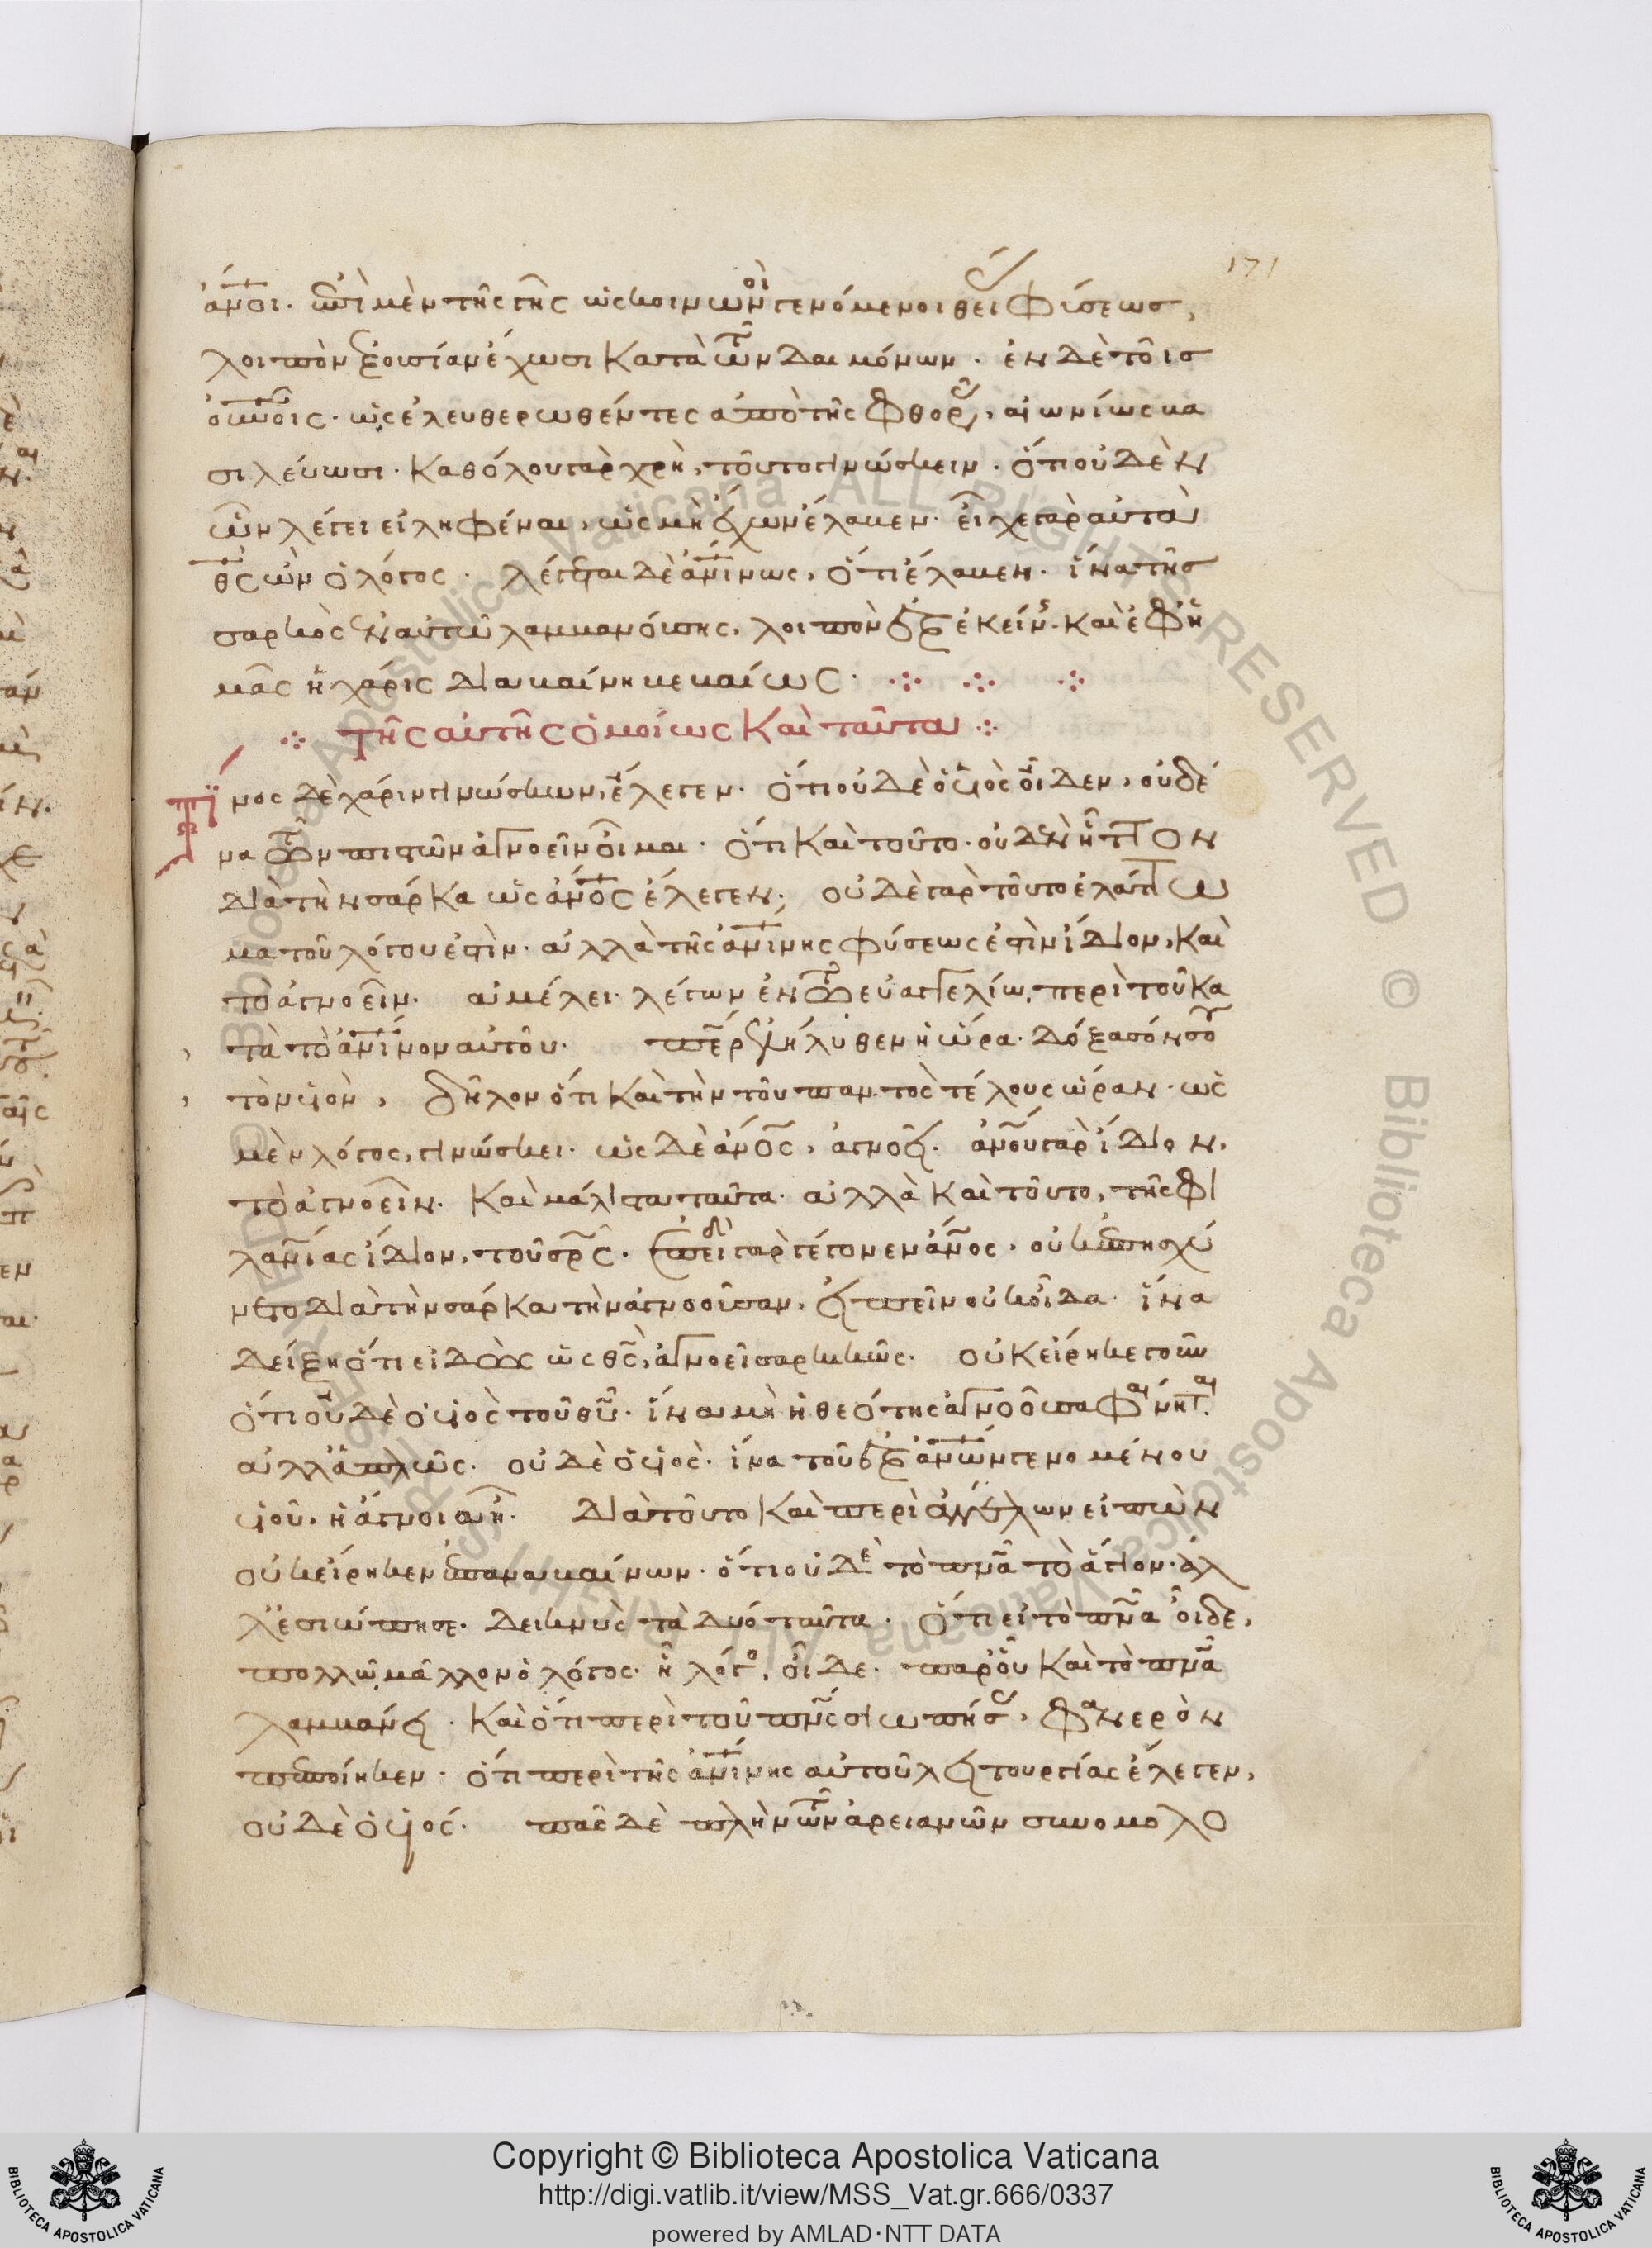 171
ἄνοι. ἐπὶ μὲν τῆς γῆς ὡς κοινωνοὶ γενόμενοι θείας φύσεως,
λοιπὸν ἐξουσίαν ἔχωσι κατὰ τῶν δαιμόνων. ἐν δὲ τοῖς
οὐνοῖς. ὡς ἐλευθερωθέντες ἀπὸ τῆς φθορᾶς, αἰωνίως βα
σιλεύωσι. καθόλου γὰρ χρὴ, τοῦτο γινώσκειν. ὅτι οὐδὲν
ὧν λέγει εἰληφέναι, ὡς μὴ ἔχων ἔλαβεν. εἶχε γὰρ αὐτὰ
θς ὢν ὁ λόγος. λέγεται δὲ ἀνίνως, ὅτι ἔλαβεν. ἵνα τῆς
σαρκὸς ἐν αὐτῷ λαμβανούσης, λοιπὸν ἐξ ἐκείνης καὶ ἐφ' ἡ
μᾶς ἡ χάρις διαβαίνη βεβαίως.
τῆς αὐτῆς ὁμοίως καὶ ταῦτα
Τίνος δὲ χάριν γινώσκων, ἔλεγεν. ὅτι οὐδὲ ὁ υἱὸς οἶδεν, οὐδέ
να τῶν πιστῶν ἀγνοεῖν οἶμαι. ὅτι καὶ τοῦτο. οὐδὲν ἧττον
διὰ τὴν σάρκα ὡς ἄνος ἔλεγεν. οὐδὲ γὰρ τοῦτο ἐλάττω
μα τοῦ λόγου ἐστὶν. ἀλλὰ τῆς ἀνίνης φύσεως ἐστὶν ἴδιον, καὶ
τὸ ἀγνοεῖν. ἀμέλει λέγων ἐν τῷ εὐαγγελίω, περὶ τοῦ κα
τὰ τὸ ἀνίνον αὐτοῦ. περ ἐλήλυθεν ἡ ὥρα. δόξασόν σου
τὸν υἱὸν, δῆλον ὅτι καὶ τὴν τοῦ παντὸς τέλους ὥραν. ὡς
μὲν λόγος, γινώσκει. ὡς δὲ ἄνος, ἀγνοεῖ. ἀνου γὰρ ἴδιον,
τὸ ἀγνοεῖν. καὶ μάλιστα ταῦτα. ἀλλὰ καὶ τοῦτο, τῆς φι
λανίας ἴδιον, τοῦ σρς. ἐπειδὴ γὰρ γέγονεν ἄνος, οὐκ ἐπησχύ
νετο διὰ τὴν σάρκα τὴν ἀγνοοῦσαν, εἰπεῖν οὐκ οἶδα. ἵνα
δείξη ὅτι εἰδὼς ὡς θς, ἀγνοεῖ σαρκικῶς. οὐκ εἴρηκε γοῦν
ὅτι οὐδὲ ὁ υἱὸς τοῦ θυ. ἵνα μὴ ἡ θεότης ἀγνοοῦσα φαίνηται.
ἀλλ' ἁπλῶς. οὐδὲ ὁ υἱός. ἵνα τοῦ ἐξ ἀνων γενομένου
υἱοῦ, ἡ ἄγνοια ἦ. διὰ τοῦτο καὶ περὶ ἀγγέλων εἰπὼν
οὐκ εἴρηκεν ἐπαναβαίνων. ὅτι οὐδὲ τὸ πνα τὸ ἅγιον. ἀλ
λ' ἐσιώπησε. δεικνὺς τὰ δύο ταῦτα. ὅτι εἰ τὸ πνα οἶδε,
πολλῷ μᾶλλον ὁ λόγος. ἧ λόγος, οἶδε. παρ' οὗ καὶ τὸ πνα
λαμβάνει. καὶ ὅτι περὶ τοῦ πνς σιωπήσας, φανερὸν
πεποίηκεν. ὅτι περὶ τῆς ἀνίνης αὐτοῦ λειτουργίας ἔλεγεν,
οὐδὲ ὁ υἱός. πᾶς δὲ πλὴν τῶν ἀρειανῶν συνομολο
Copyright © Biblioteca Apostolica Vaticana
http://digi.vatlib.it/view/MSS_Vat.gr.666/0337
powered by AMLAD·NTT DATA